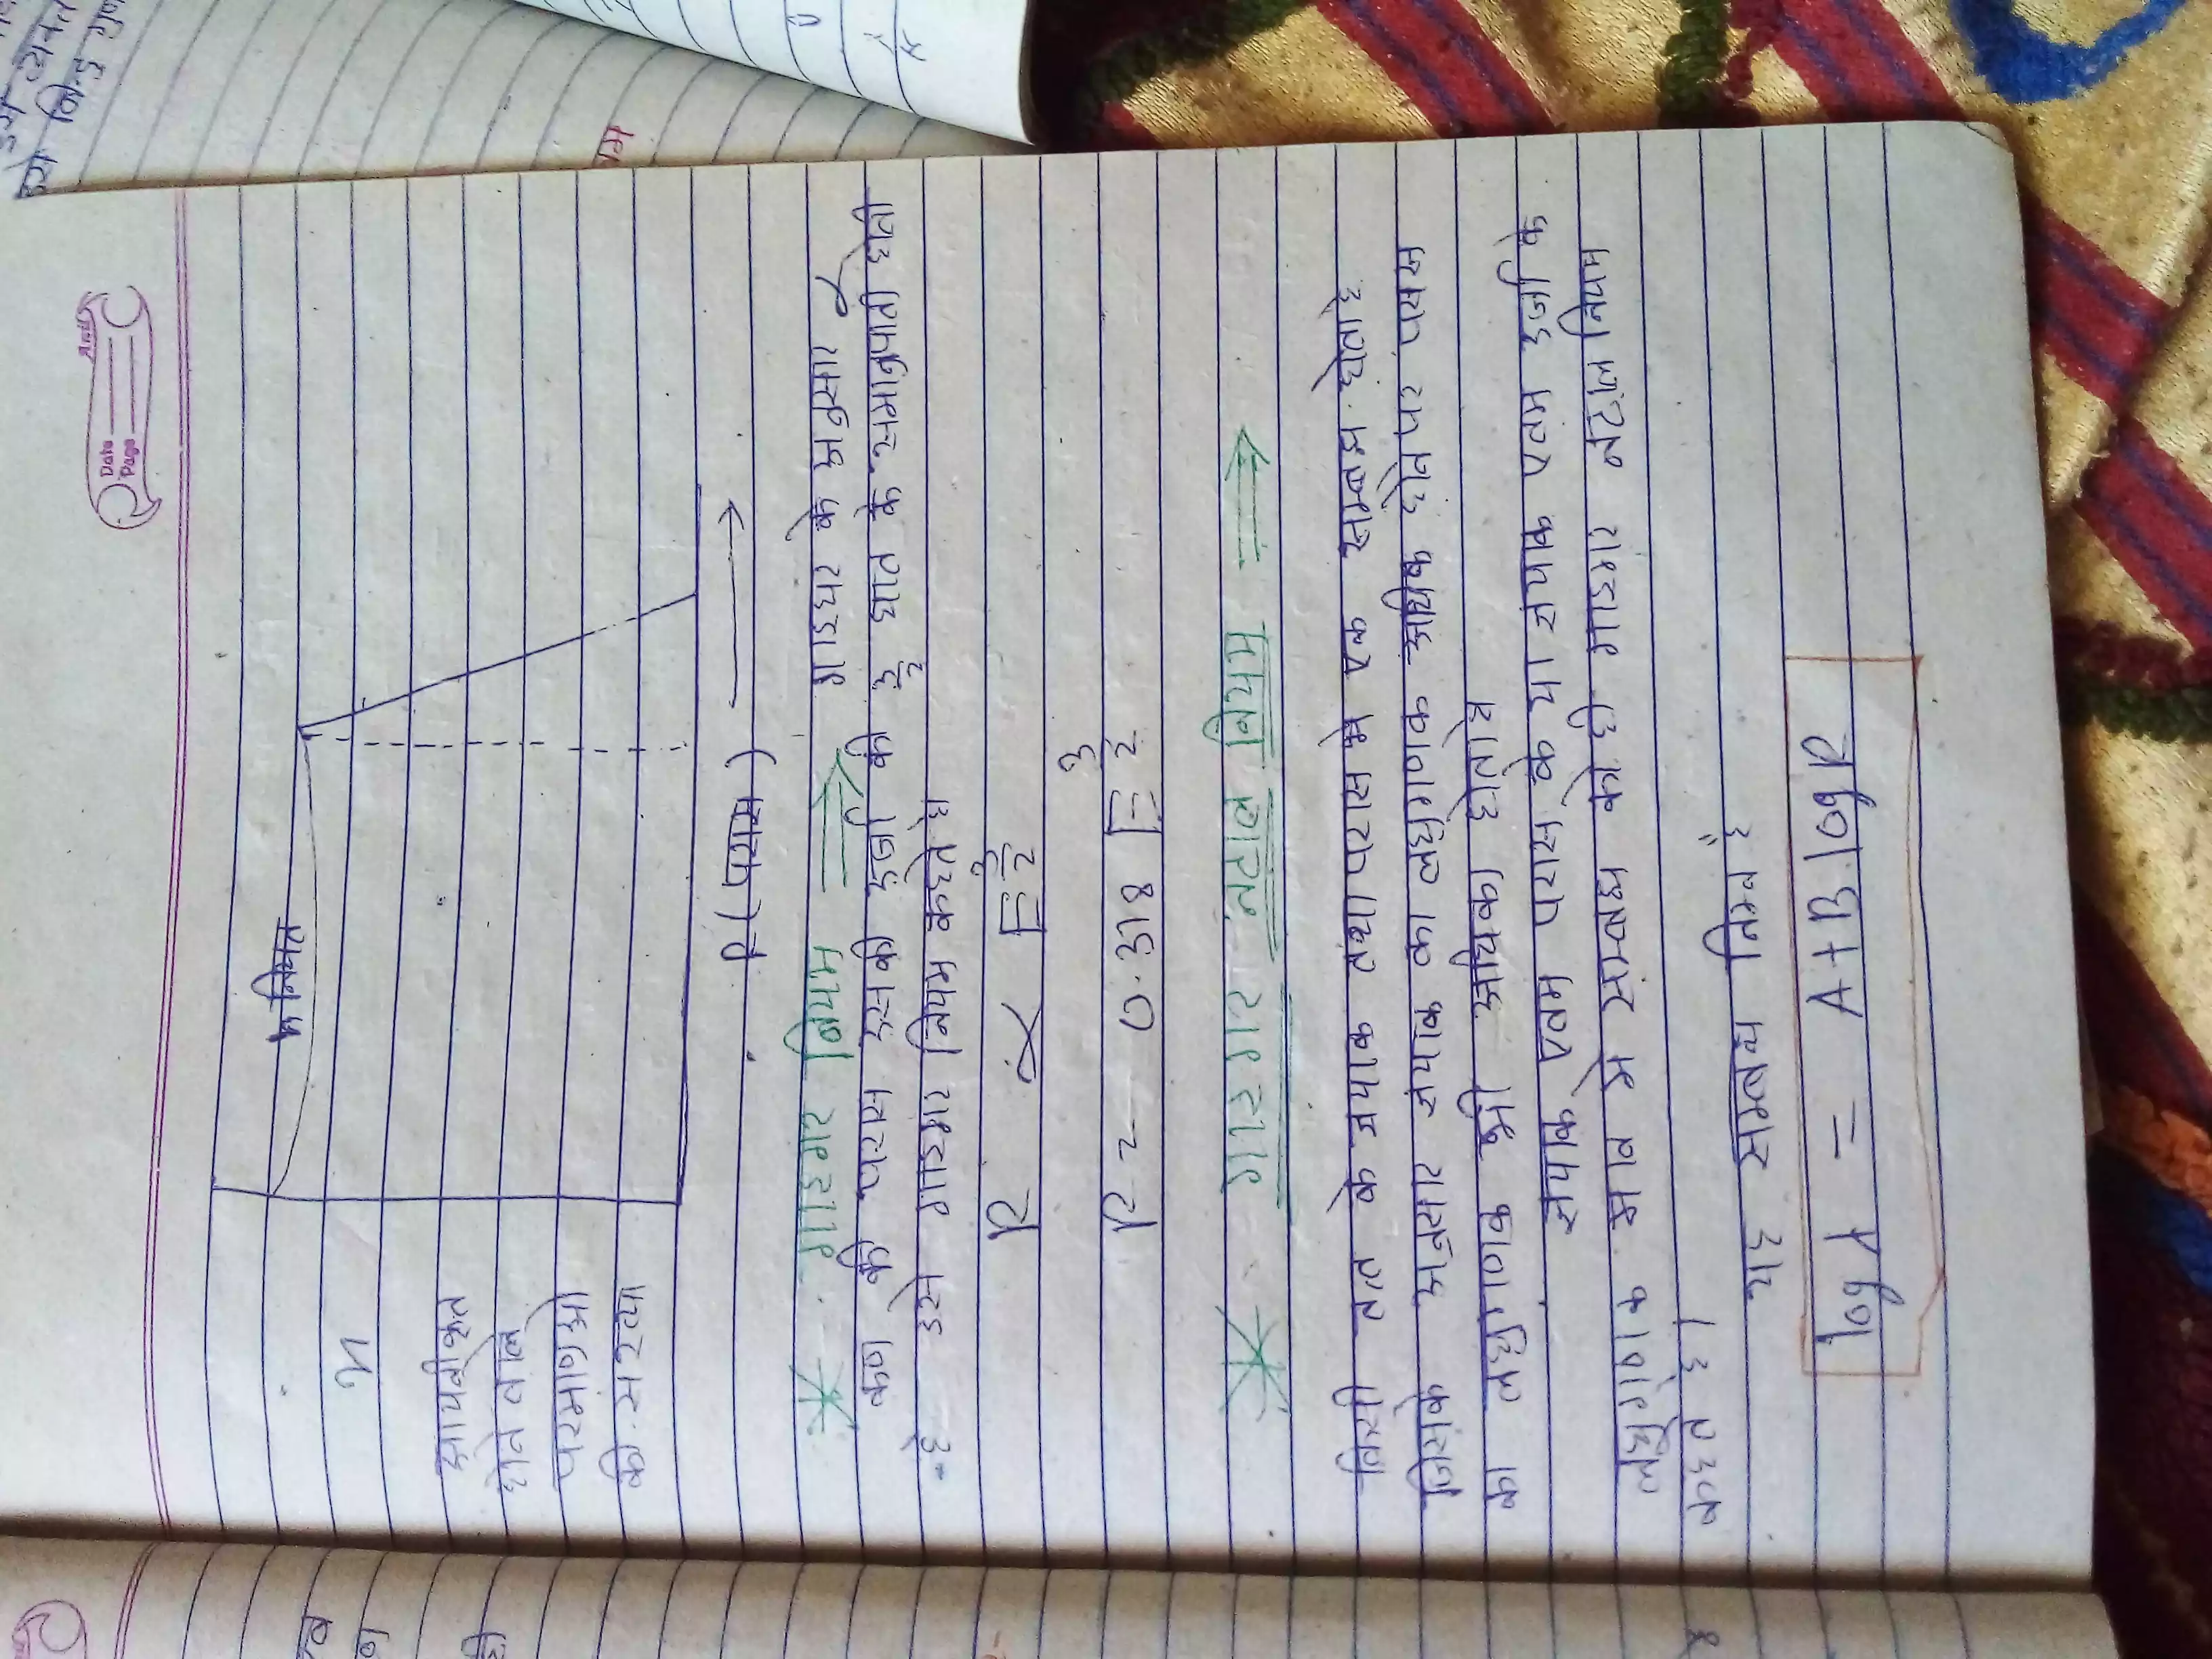 Date
Page
n नियत
n
आयनीकृत
होने वाले
परमाणुओ
की संख्या
R (परास)
* गाइगर नियम ⇒ गाइघर के अनुसार α
कण की परास इसकी ऊर्जा की 3/2 घात के समानुपाती होती
है उसे गाइगर नियम कहते है
R ∝ E 3/2
R = 0.318 E 3/2
* गाइगर नटाल नियम ⇒
किसी तत्त के क्षयांक तथा परास मे एक सम्बन्ध होता है
जिसके अनुसार क्षयांक का लघुगणक अधिक होने पर परास
का लघुगणक भी अधिक होता है
क्षयांक एवम परास के या क्षयांक एवम ऊर्जा के
लघुगणक मान मे सम्बन्ध को ही गाइगर नटाल नियम
कहते है।
यह सम्बन्ध निम्न है
log λ = A + B log R